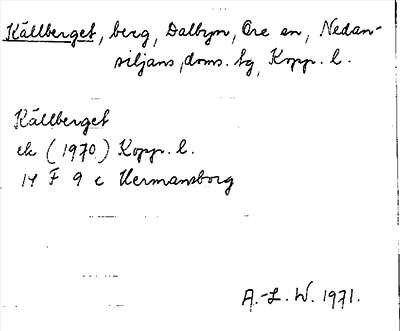 Källberget, berg, Dalbyn, Ore sn, Nedan-
siljans doms. tg, Kopp. l.
Källberget
ek (1970) Kopp. l.
14 F 9 c Hermansborg
A.-L. W. 1971.